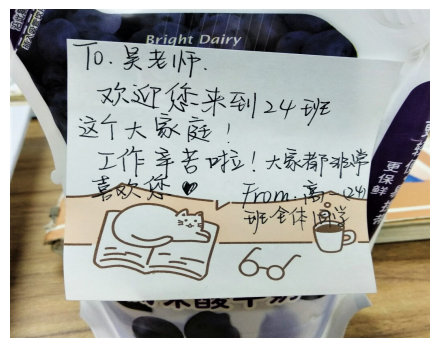 Bright Dairy
To. 吴老师.
欢迎您来到24班
这个大家庭！
工作辛苦啦！大家都非常
喜欢您♥
From.高一(24)
班全体同学
更
保
鲜
酸牛奶